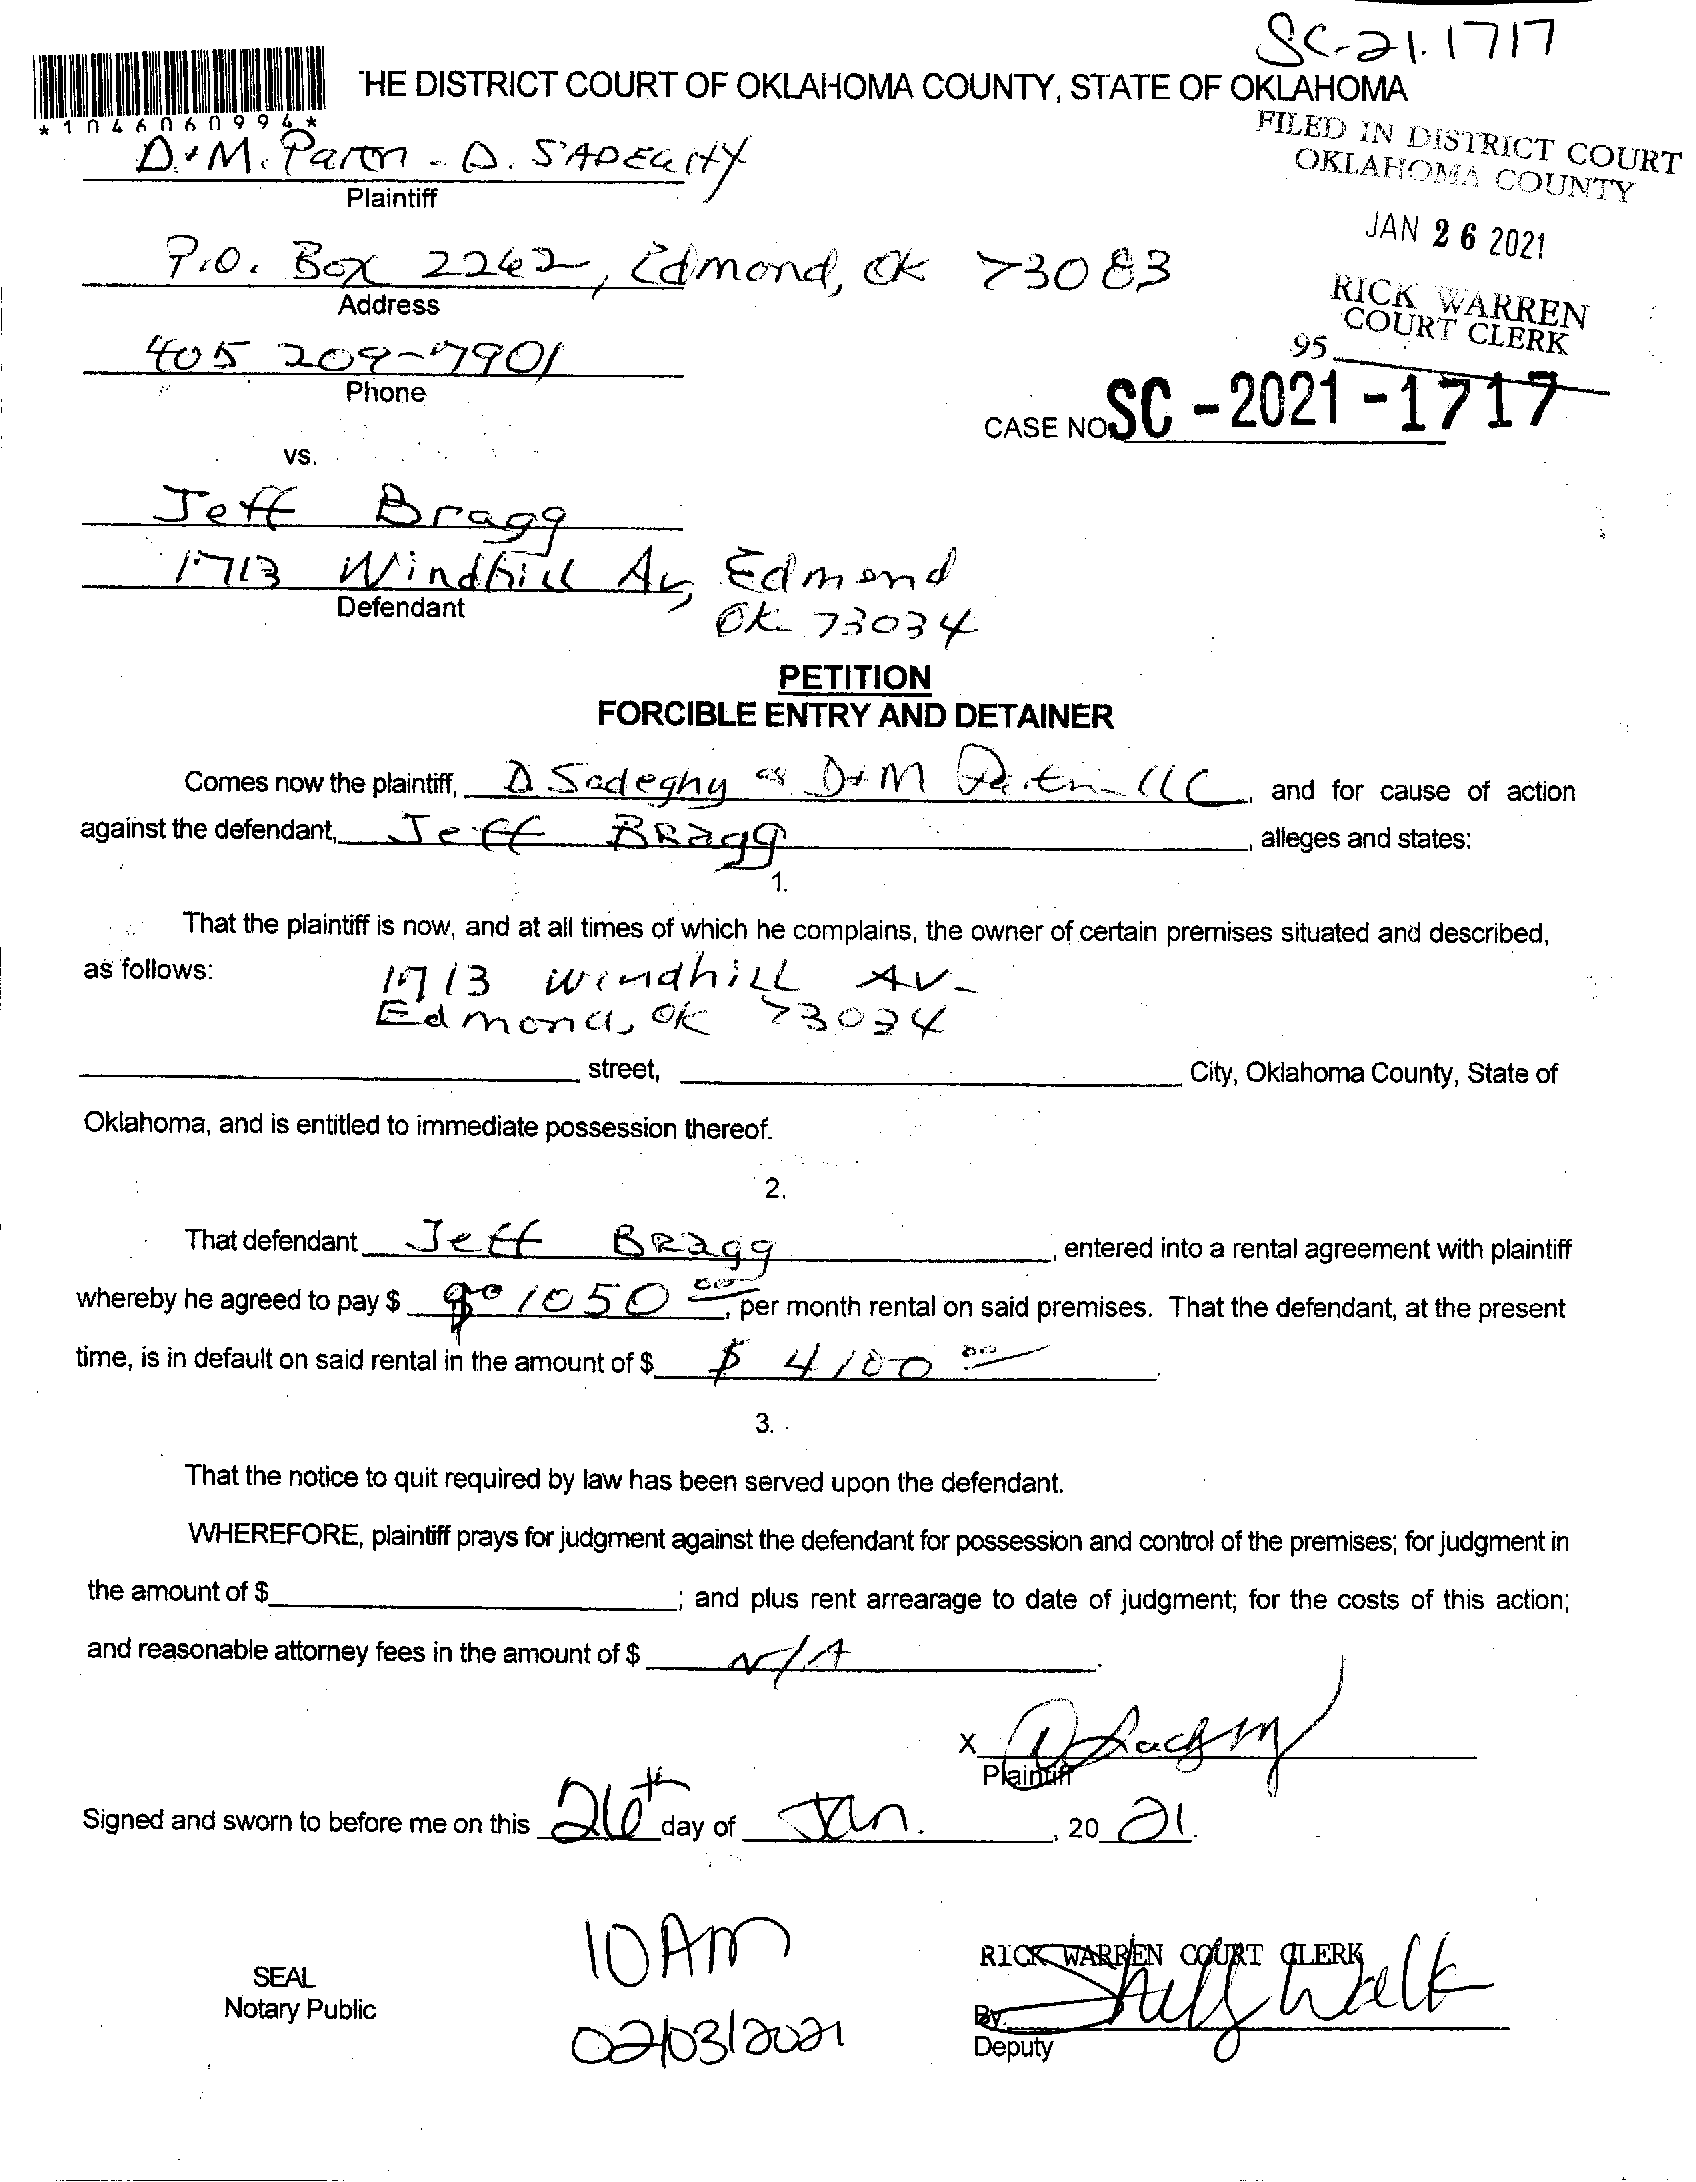 SC-21-1717
THE DISTRICT COURT OF OKLAHOMA COUNTY, STATE OF OKLAHOMA
*1046060994*
FILED IN DISTRICT COURT
OKLAHOMA COUNTY
D+M. - D. SADEGHY
Plaintiff
JAN 26 2021
P.O. Box 2262, Edmond, OK 73083
Address
RICK WARREN
COURT CLERK
405 209-7901
95
Phone
CASE NO. SC-2021-1717
vs.
Jeff Bragg
1713 Windhill Av, Edmond
Defendant
OK 73034
PETITION
FORCIBLE ENTRY AND DETAINER
Comes now the plaintiff, D Sadeghy as D+M LLC, and for cause of action
against the defendant, Jeff BRagg, alleges and states:
1.
That the plaintiff is now, and at all times of which he complains, the owner of certain premises situated and described,
as follows: 1713 windhill AV-
Edmond, OK 73034
street, City, Oklahoma County, State of
Oklahoma, and is entitled to immediate possession thereof.
2.
That defendant Jeff BRagg, entered into a rental agreement with plaintiff
whereby he agreed to pay $ 1050 00, per month rental on said premises. That the defendant, at the present
time, is in default on said rental in the amount of $ $ 4100 00.
3.
That the notice to quit required by law has been served upon the defendant.
WHEREFORE, plaintiff prays for judgment against the defendant for possession and control of the premises; for judgment in
the amount of $ ; and plus rent arrearage to date of judgment; for the costs of this action;
and reasonable attorney fees in the amount of $ N/A.
X
Plaintiff
Signed and sworn to before me on this 26th day of Jan., 2021.
10AM
RICK WARREN COURT CLERK
SEAL
Notary Public
02/03/2021
By
Deputy